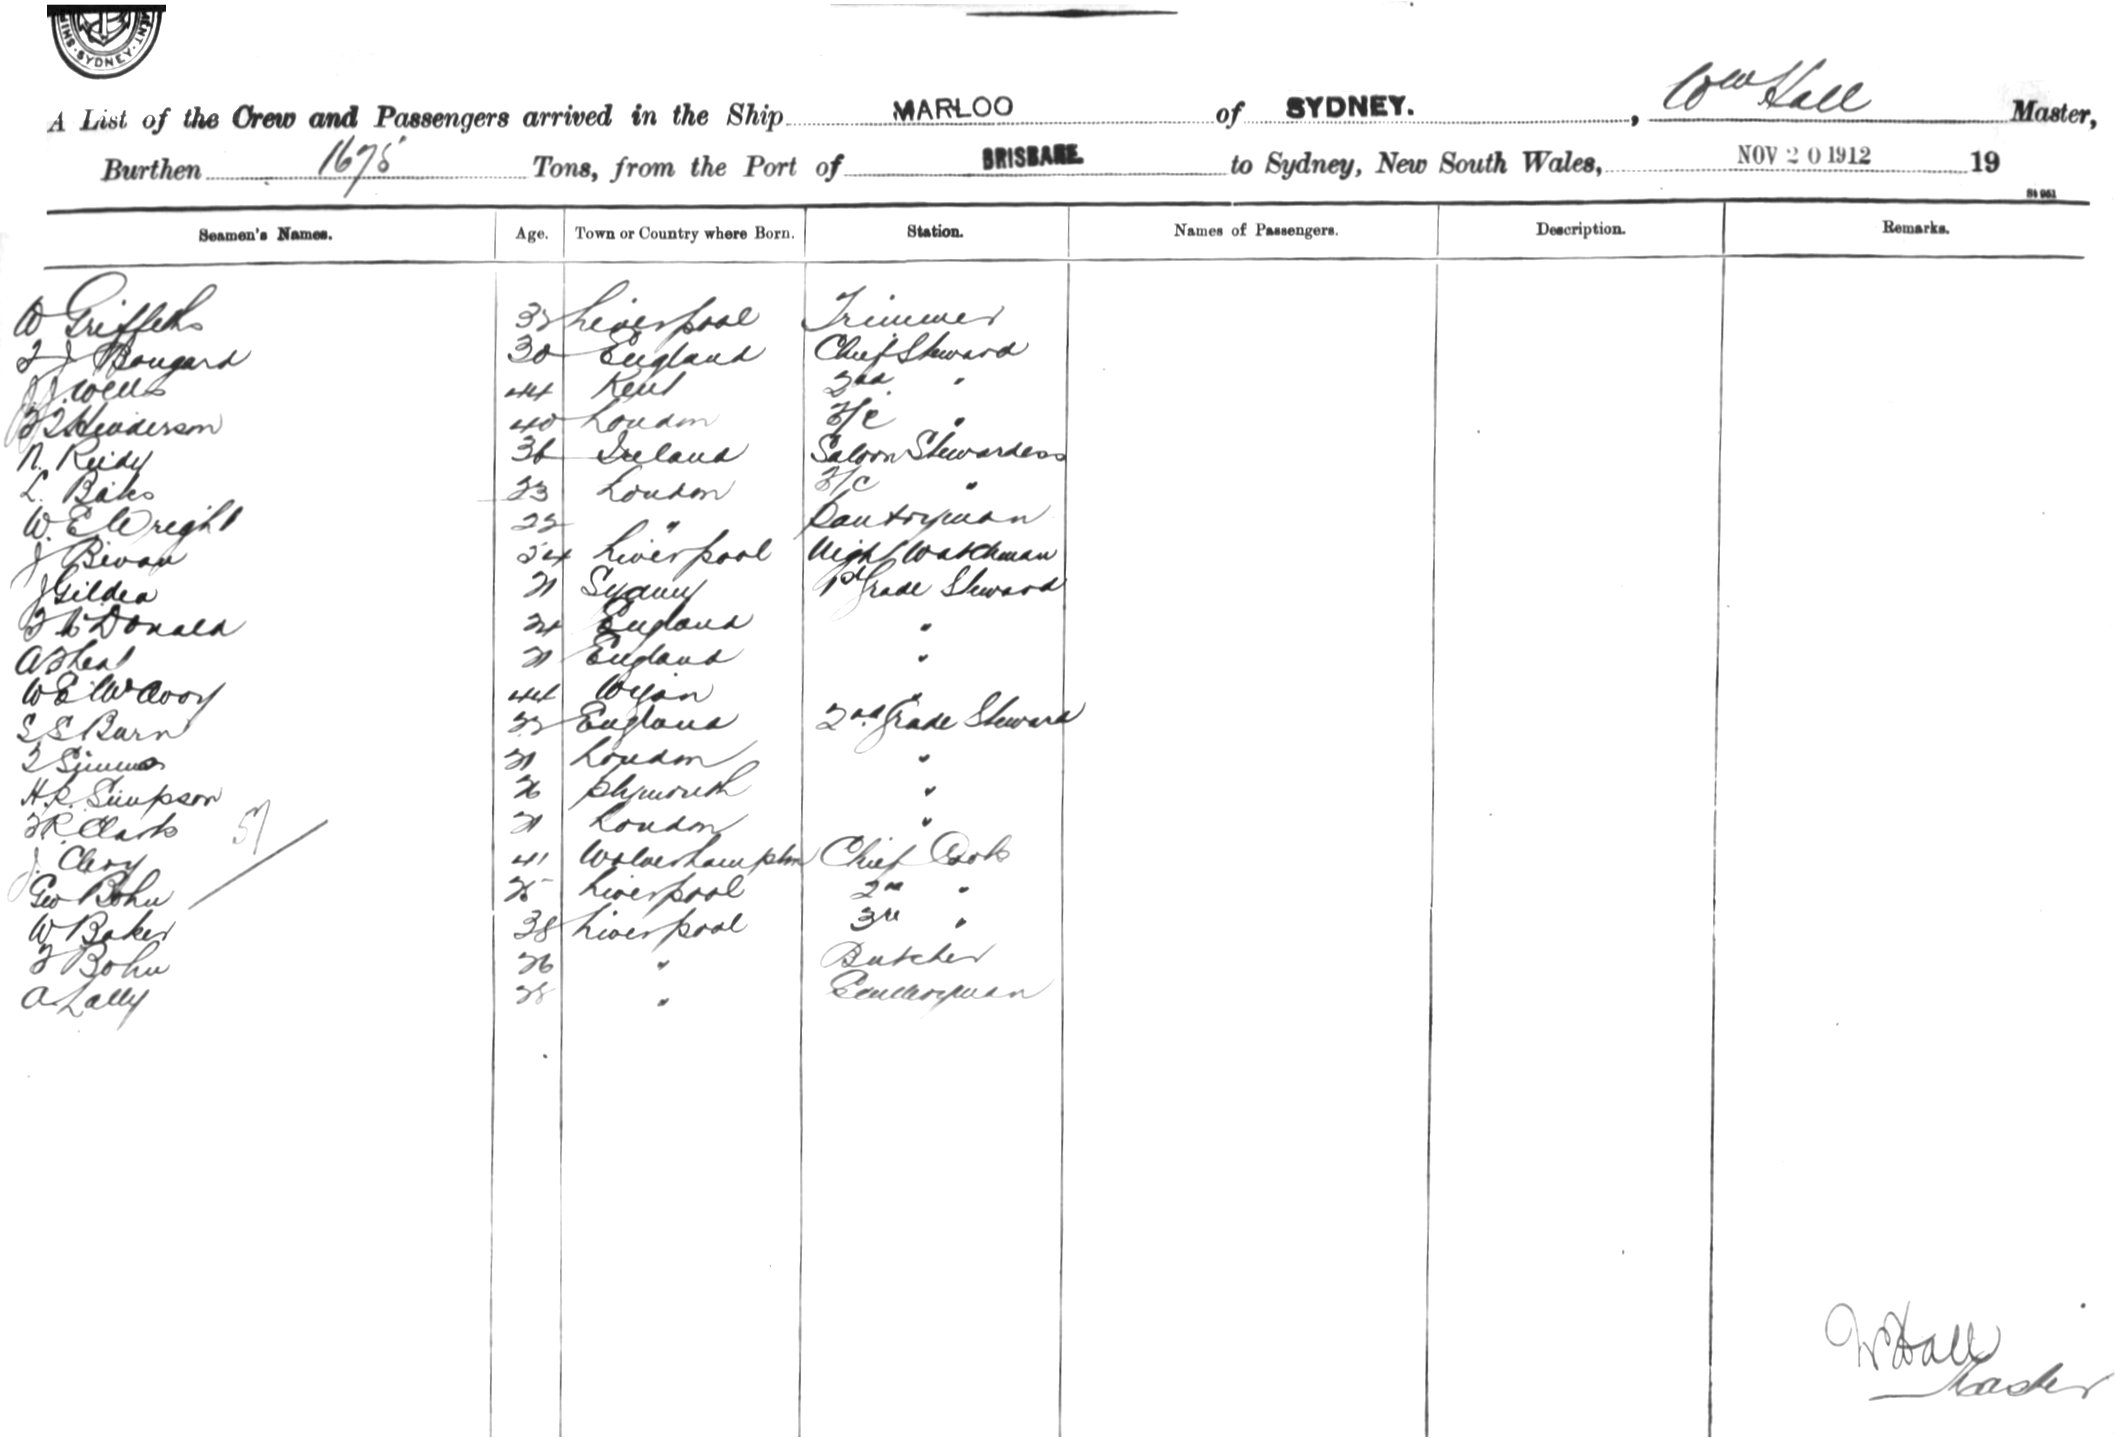 SYDNEY
A List of the Crew and Passengers arrived in the Ship MARLOO of SYDNEY. , Wm Hall Master,
Burthen 1675 Tons, from the Port of BRISBANE to Sydney, New South Wales, NOV 20 1912 19
Seamen's Names. Age. Town or Country where Born. Station. Names of Passengers. Description. Remarks.
W Griffeths Liverpool Trimmer
30 England Chief Steward
J. J. Wells 44 Kent 2nd "
Henderson 40 London F/C "
N. Reidy 36 Ireland Saloon Stewardess
L. 23 London F/C "
W. E. Wright 22 " Pantryman
J Bevan 54 Liverpool Night Watchman
J Gildea 21 Sydney 1st Grade Steward
McDonald 24 England "
21 England "
W E McAvoy 44 Wigan "
S S Burn 22 England 2nd Grade Steward
Simms 21 London "
H. R. Simpson 26 Plymouth "
F R Clark 21 London "
57
J. Clery 41 Wolverhampton Chief Cook
Geo Bohn 25 Liverpool 2nd "
W Baker 38 Liverpool 3rd "
F Bohn 26 " Butcher
A Lally 28 "
W Hall
Master